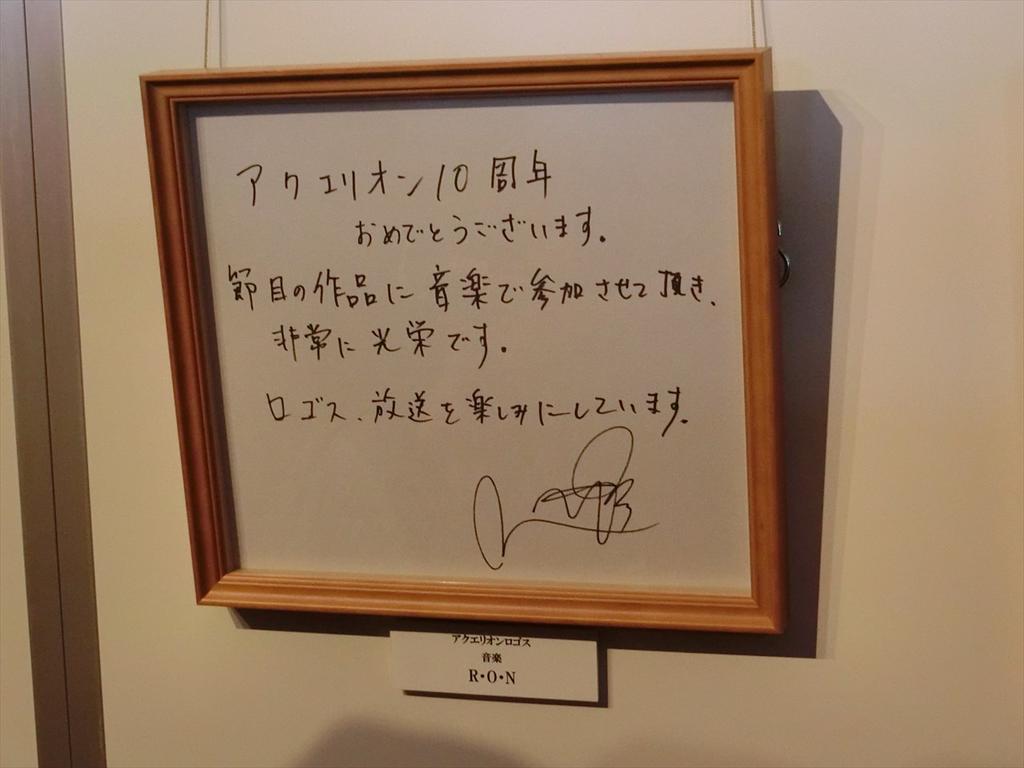 アクエリオン10周年
おめでとうございます。
節目の作品に音楽で参加させて頂き、
非常に光栄です。
ロゴス、放送を楽しみにしています。
アクエリオンロゴス
音楽
R・O・N